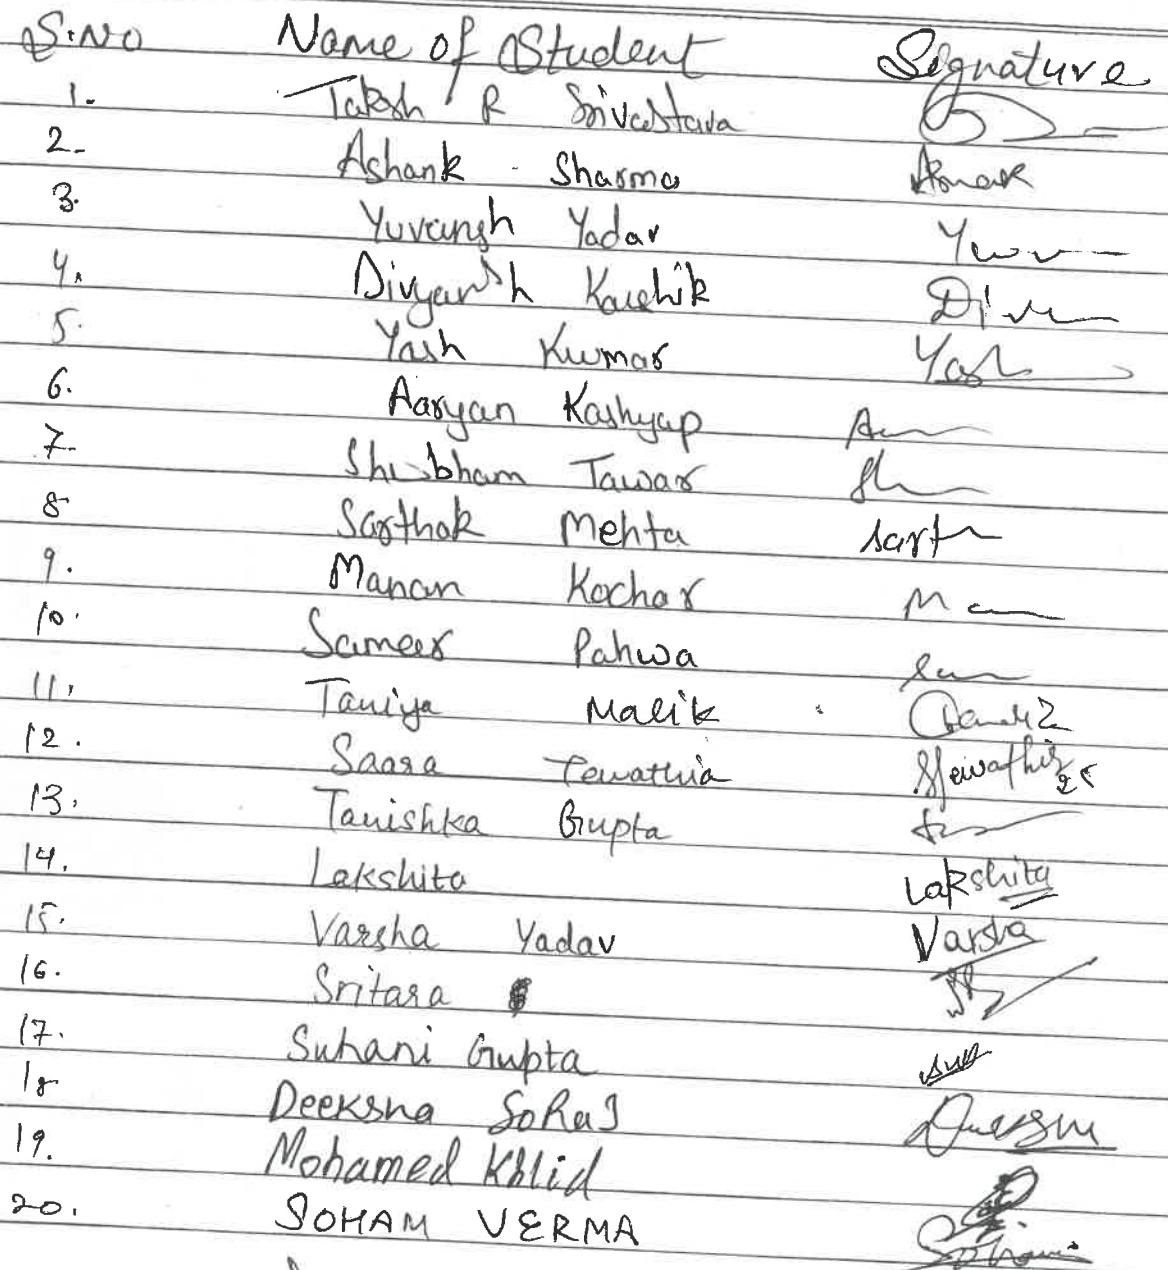 S.NO Name of Student Signature
1. Taksh R Srivastava
2. Ashank Sharma
3. Yuvansh Yadav Yuv
4. Divyansh Kaushik Div
5. Yash Kumar Yash
6. Aaryan Kashyap
7. Shubham Tawar Sh
8 Sarthak Mehta Sarth
9. Manan Kochar
10. Sameer Pahwa
11. Taniya Malik
12. Saara Tewathia STewathia
13. Tanishka Gupta
14. Lakshita Lakshita
15. Varsha Yadav Varsha
16. Sritara
17. Suhani Gupta
18 Deeksha
19. Mohamed Khlid
20. SOHAM VERMA Soham